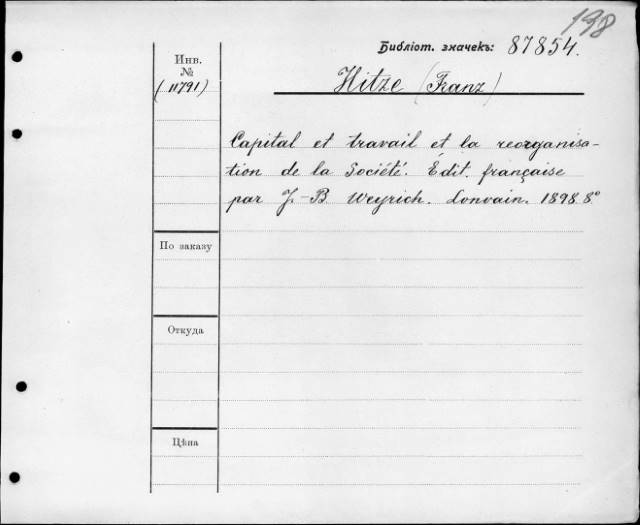 198
Библіот. значекъ: 87854.
Инв.
№
(11791)
Hitze (Franz)
Capital et travail et la reorganisa-
tion de la Société. Édit. française
par J.-B. Weyrich. Louvain. 1898. 8°
По заказу
Откуда
Цѣна